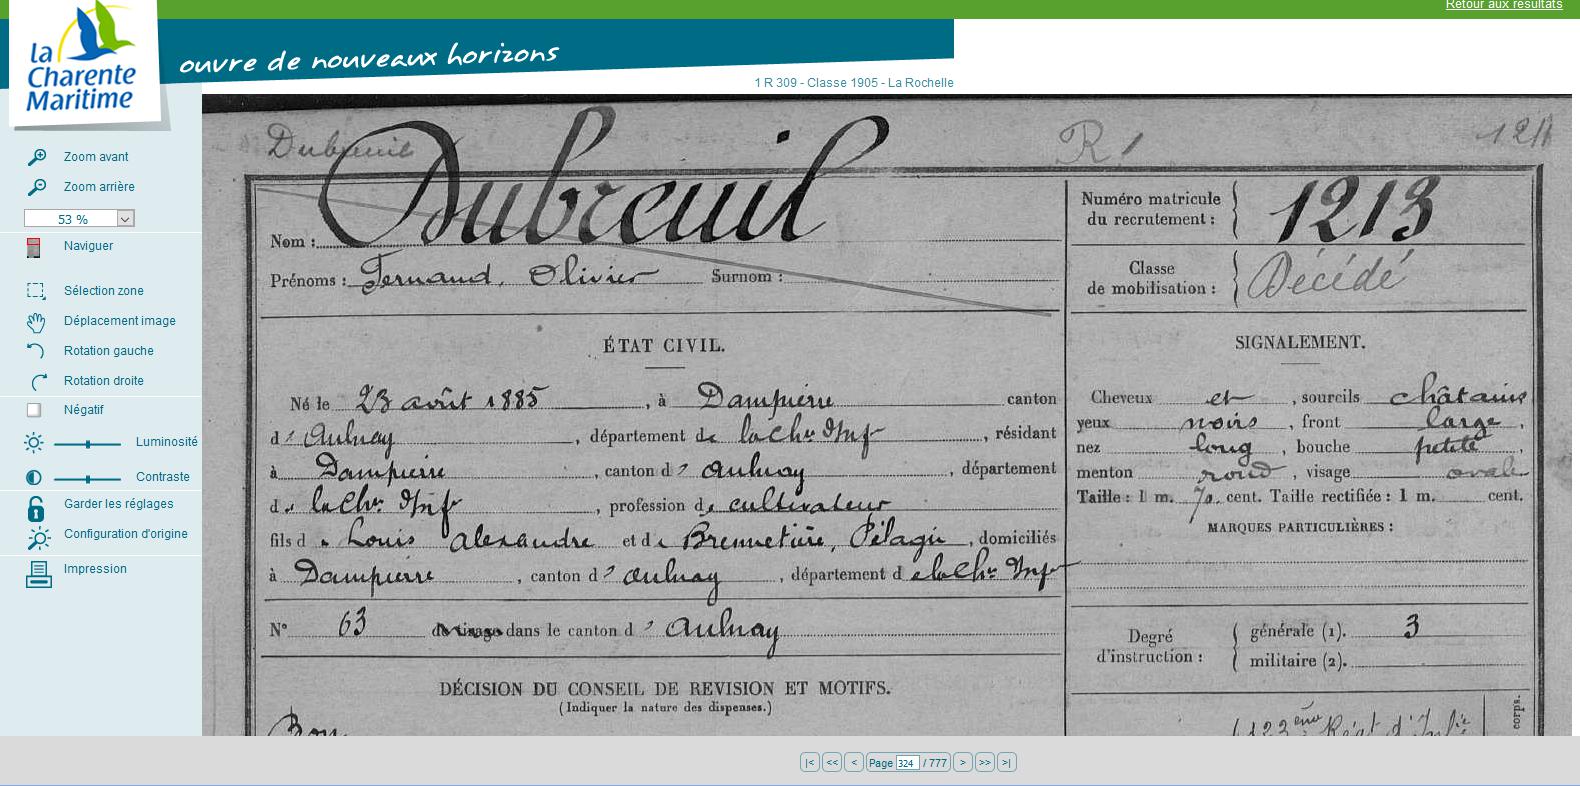 Retour aux résultats
la
Charente
Maritime
ouvre de nouveaux horizons
1 R 309 - Classe 1905 - La Rochelle
Zoom avant
Zoom arrière
53 %
Naviguer
Sélection zone
Déplacement image
Rotation gauche
Rotation droite
Négatif
Luminosité
Contraste
Garder les réglages
Configuration d'origine
Impression
Dubreuil R 1
Nom : Dubreuil
Prénoms : Fernand, Olivier Surnom :
Numéro matricule
du recrutement : 1213
Classe
de mobilisation : Décédé
ÉTAT CIVIL.
Né le 23 août 1885, à Dampierre canton
d' Aulnay, département de la Chre Infre, résidant
à Dampierre, canton d' Aulnay, département
de la Chre Infre, profession de cultivateur
fils de Louis Alexandre et de Brunetière, Pélagie, domiciliés
à Dampierre, canton d' Aulnay, département de la Chre Infre
N° 63 de tirage dans le canton d' Aulnay
DÉCISION DU CONSEIL DE REVISION ET MOTIFS.
(Indiquer la nature des dispenses.)
Bon
SIGNALEMENT.
Cheveux et, sourcils châtains
yeux noirs, front large,
nez long, bouche petite,
menton rond, visage ovale
Taille : 1 m. 70 cent. Taille rectifiée : 1 m. cent.
MARQUES PARTICULIÈRES :
Degré
d'instruction :
générale (1). 3
militaire (2).
123ème Régt d'Infie
corps.
|< << < Page 324 / 777 > >> >|